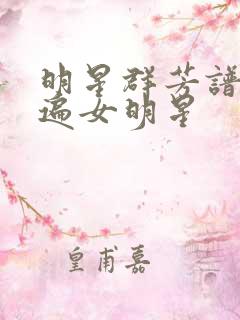 明星群芳譜
遍女明星
皇甫嘉